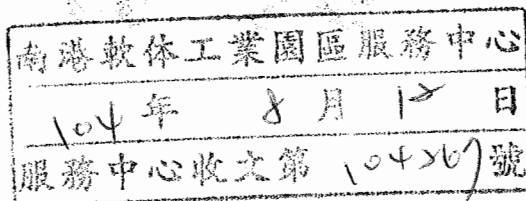 南港軟体工業園區服務中心
104年8月12日
服務中心收文第104267號